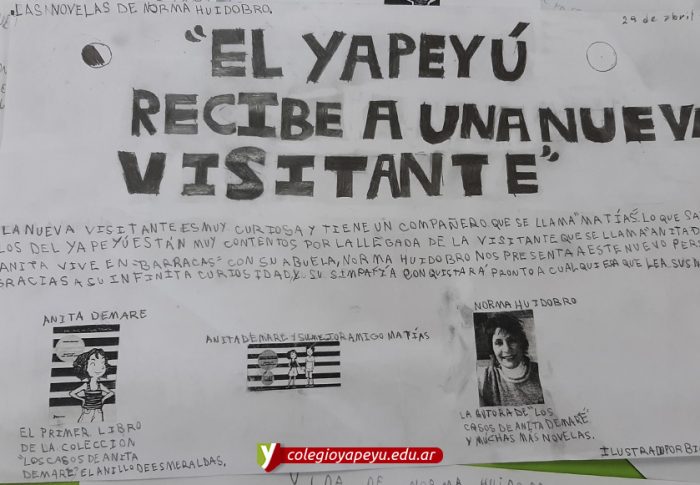 LAS NOVELAS DE NORMA HUIDOBRO.
29 de abril
"EL YAPEYÚ
RECIBE A UNA NUEV
VISITANTE"
LA NUEVA VISITANTE ES MUY CURIOSA Y TIENE UN COMPAÑERO QUE SE LLAMA "MATÍAS". LO QUE S
LOS DEL YAPEYÚ ESTÁN MUY CONTENTOS POR LA LLEGADA DE LA VISITANTE QUE SE LLAMA "ANITA D
ANITA VIVE EN "BARRACAS" CON SU ABUELA, NORMA HUIDOBRO NOS PRESENTA A ESTE NUEVO PER
GRACIAS A SU INFINITA CURIOSIDAD Y SU SIMPATÍA CONQUISTARÁ PRONTO A CUALQUIERA QUE LEA SUS N
ANITA DEMARE
ANITA DEMARE Y SU MEJOR AMIGO MATÍAS
NORMA HUIDOBRO
EL PRIMER LIBRO
DE LA COLECCION
"LOS CASOS DE ANITA
DEMARE" EL ANILLO DE ESMERALDAS.
LA AUTORA DE "LOS
CASOS DE ANITA DEMARE"
Y MUCHAS MAS NOVELAS.
ILUSTRADO POR BI
colegioyapeyu.edu.ar
VIDA DE NORMA HUIDOB